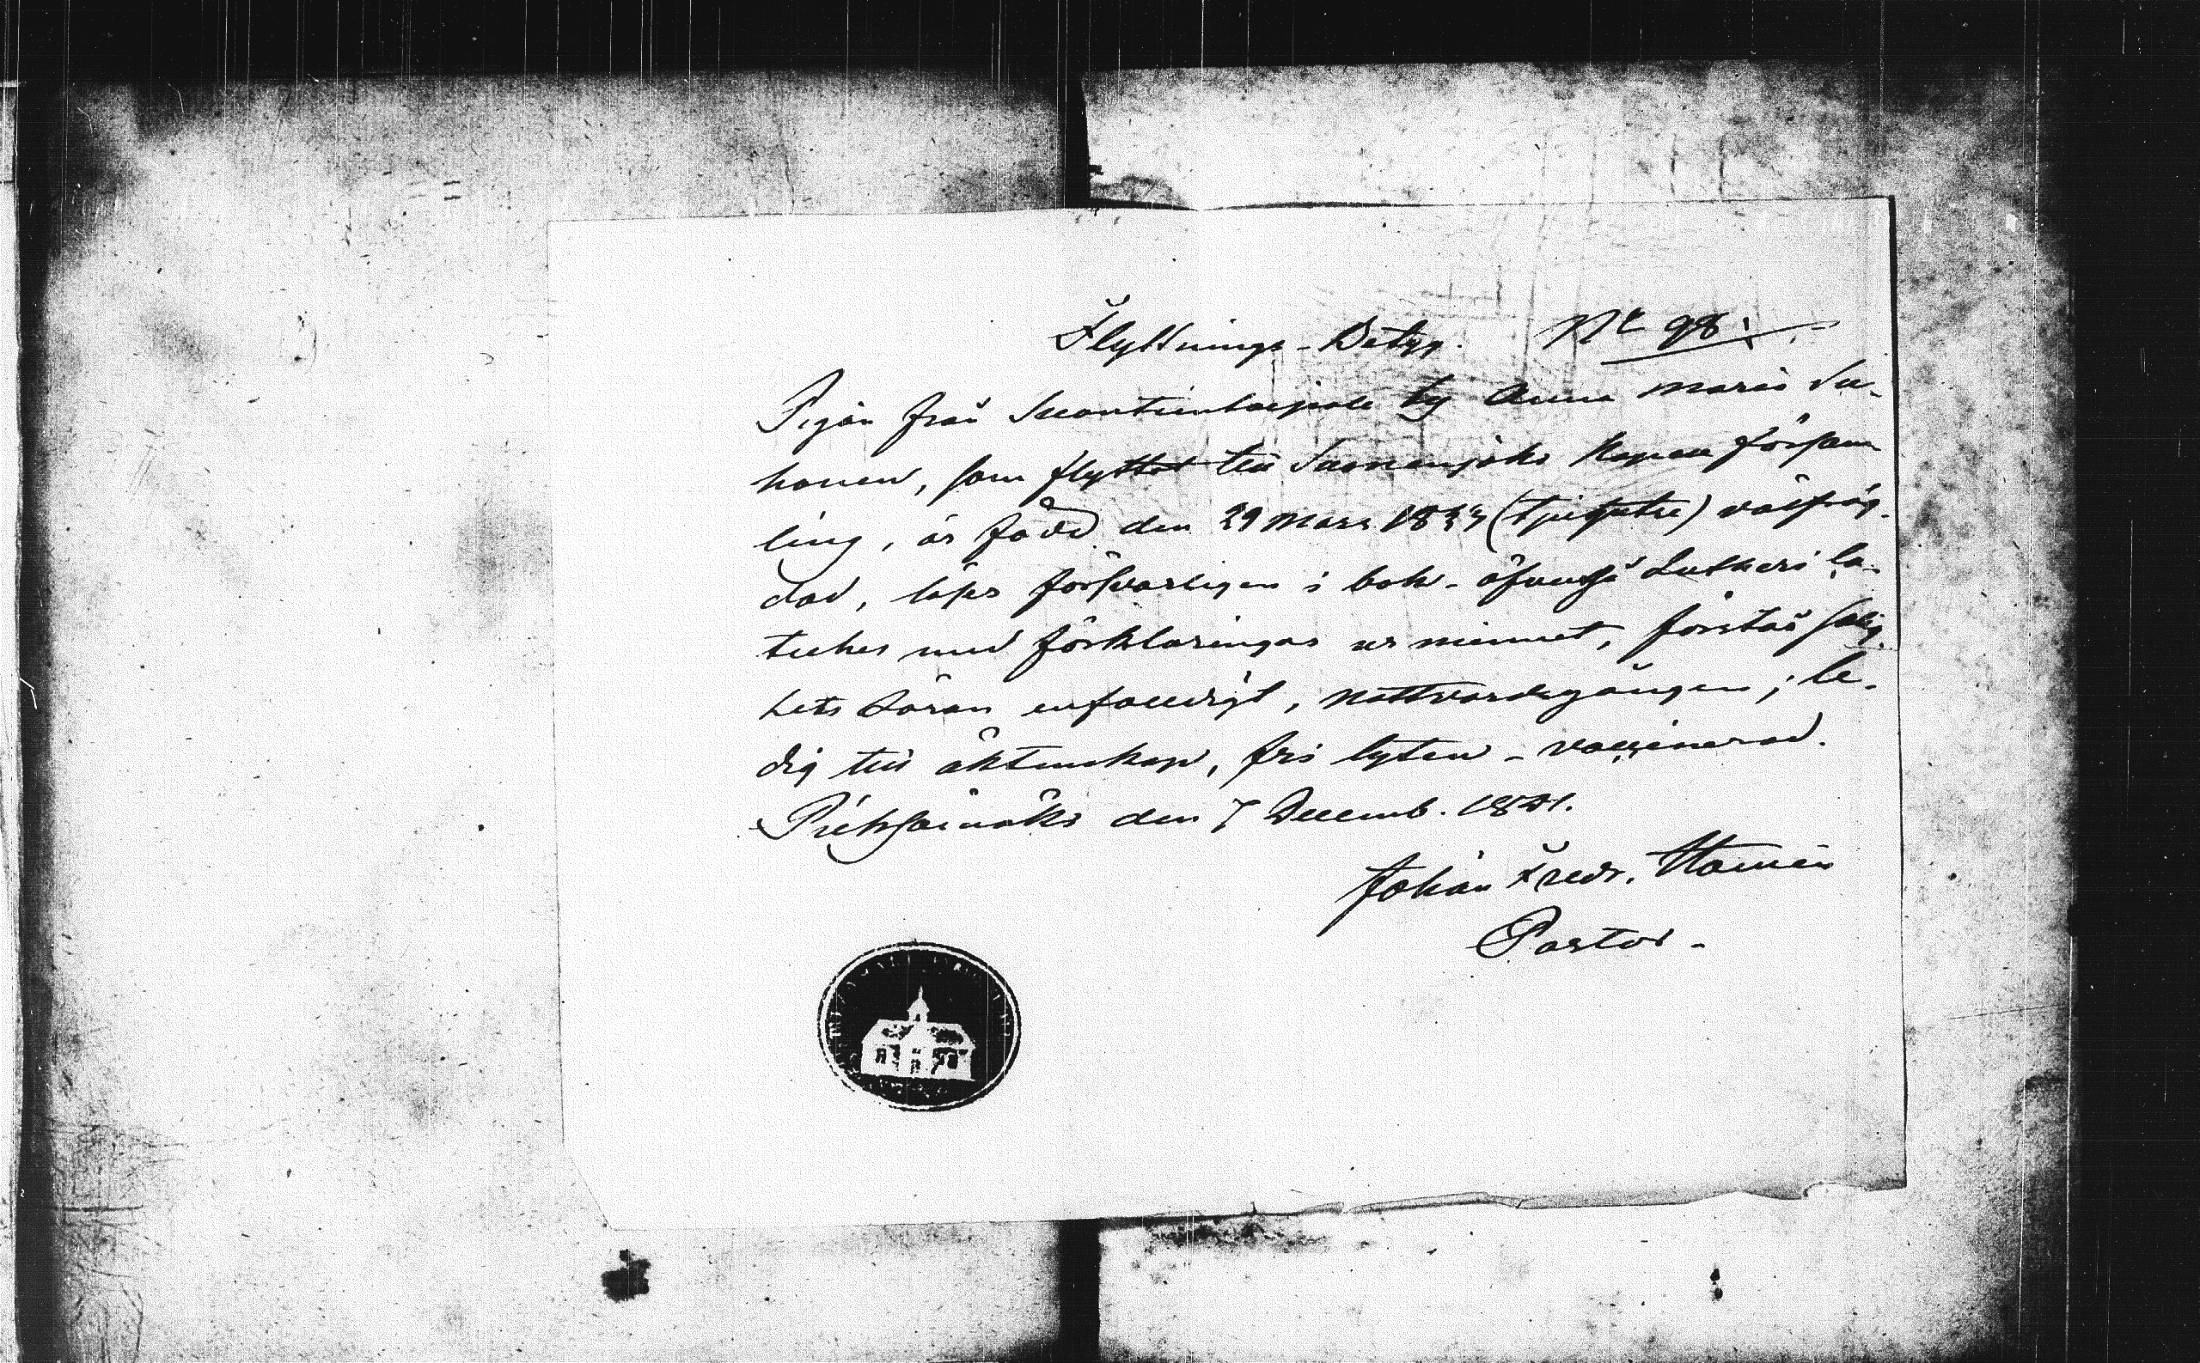 Flyttnings-Betyg. No 98.
Pigan från by Anna Maria Su-
honen, som flyttat till Suonenjoki Kapell försam
ling, är född den 29 Mars 1823 (tjugutre) välfräg-
dad, läser försvarligen i bok - äfvenså Lutheri Ca-
teches med förklaringar ur minnet, förstår salig-
hets Läran enfaldigt, nattvardsgången; le-
dig till äktenskap, fri lyten - vaccinerad.
Pieksämäki den 7 Decemb. 1841.
Johan Fredr.
Pastor -